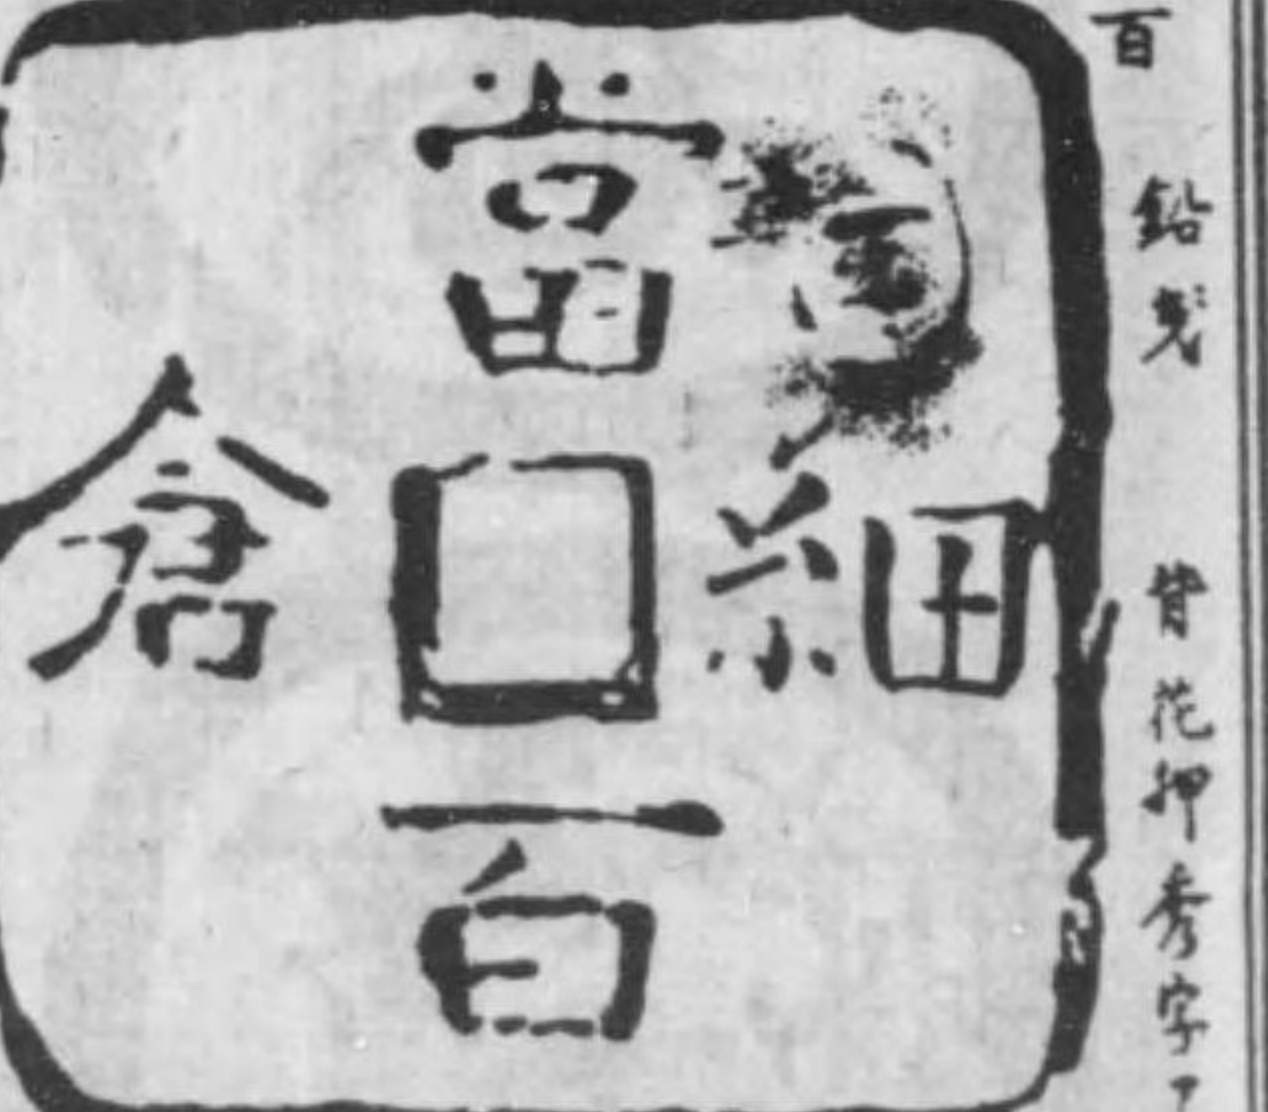 百 鉛 戔 背花押秀字
當百
細倉